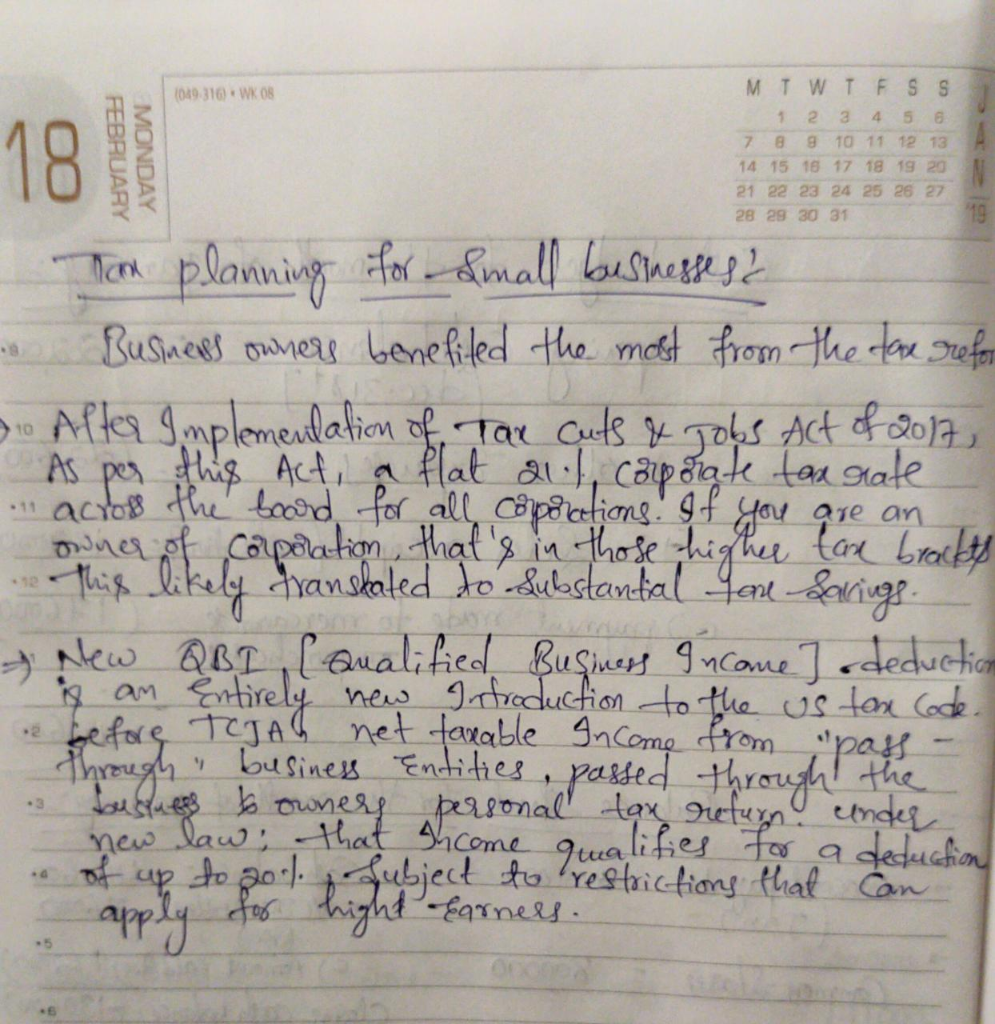 18
MONDAY
FEBRUARY
(049-316) • WK 08
M T W T F S S
1 2 3 4 5 6
7 8 9 10 11 12 13
14 15 16 17 18 19 20
21 22 23 24 25 26 27
28 29 30 31
JAN
'19
Tax planning for Small businesses:
.9 Business owners benefited the most from the tax refor
→ 10 After Implementation of Tax Cuts & Jobs Act of 2017,
As per this Act, a flat 21% corporate tax rate
.11 across the board for all corporations. If you are an
owner of corporation, that's in those higher tax brackts
.12 This likely translated to substantial tax Savings.
⇒ New QBI [Qualified Business Income] deduction
is an Entirely new Introduction to the US tax Code.
.2 before TCJA, net taxable Income from "pass -
through" business Entities, passed through the
.3 business to owners personal tax return. under
new law; that Income qualifies for a deduction
.4 of up to 20%, Subject to restrictions that Can
apply for hight Earness.
.5
.6